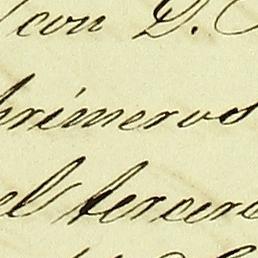 con D.
primeros
el tercero